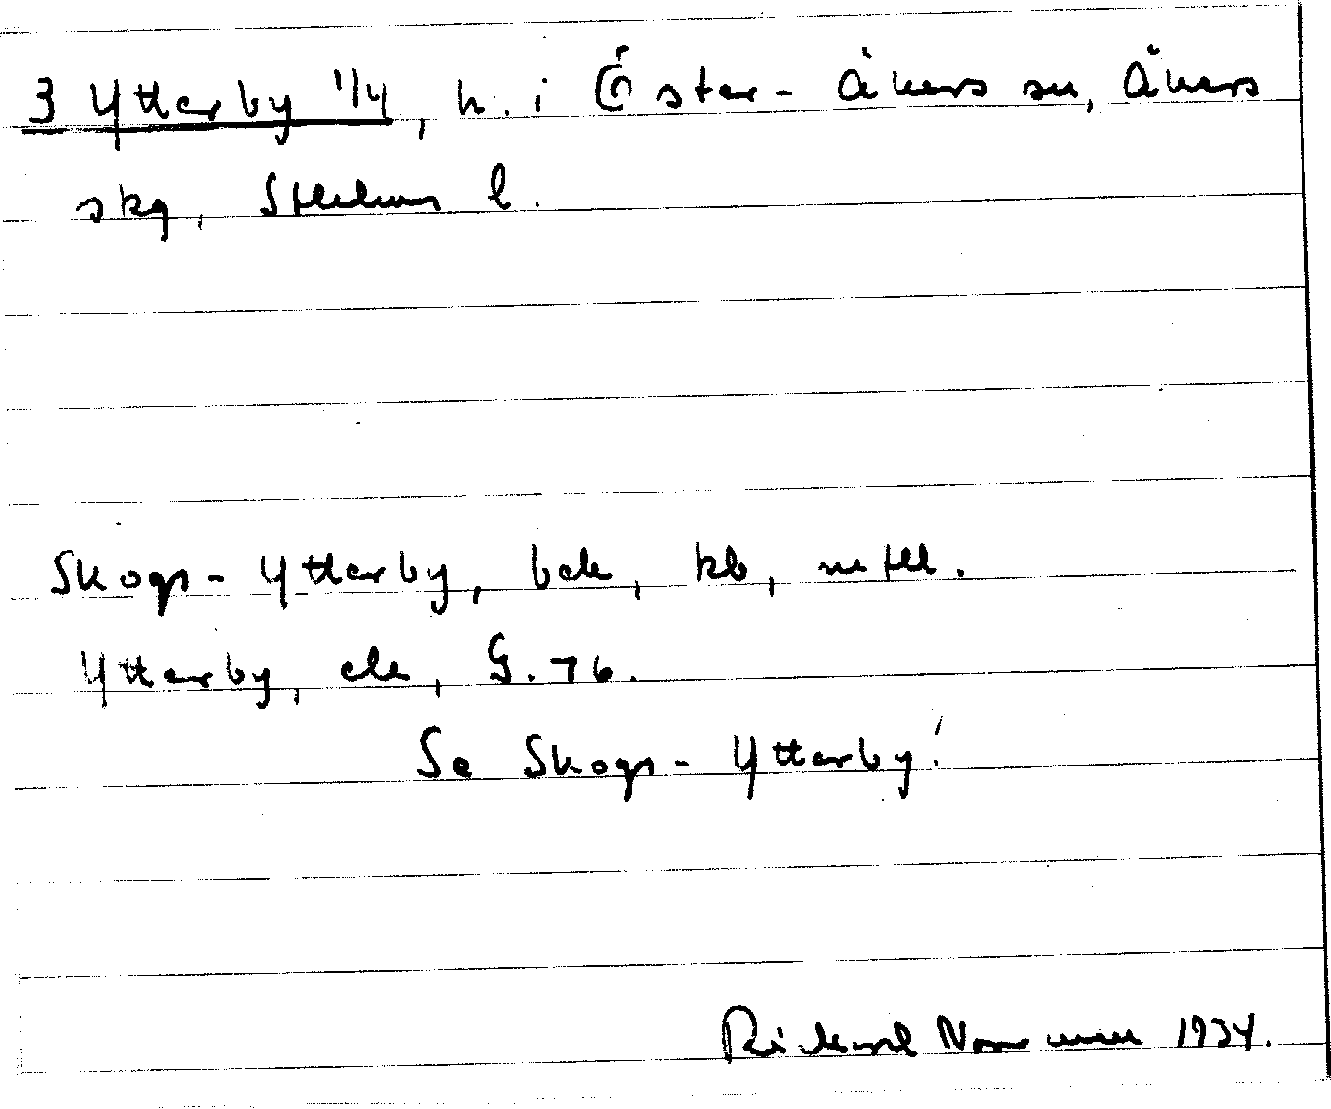 3 Ytterby 1/4, h. i Öster-Åkers sn, Åkers
skg, Sthlms l.
Skogs-Ytterby, bck, kb, mtll.
Ytterby, ck, G. 76.
Se Skogs-Ytterby!
Rickard 1934.